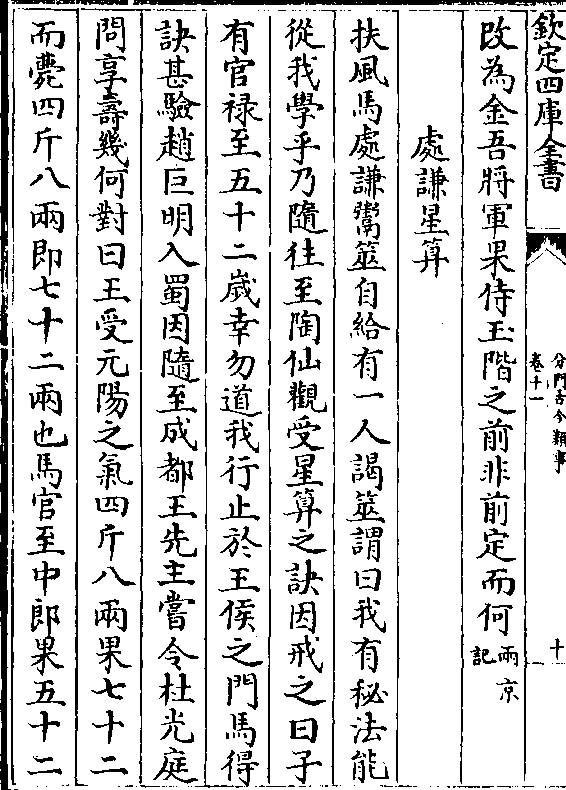 欽定四庫全書
分門古今類事
卷十一
十一
改為金吾將軍果侍玉階之前非前定而何兩京記
處謙星算
扶風馬處謙鬻筮自給有一人謁筮謂曰我有秘法能
從我學乎乃隨往至陶仙觀受星算之訣因戒之曰子
有官禄至五十二嵗幸勿道我行止於王侯之門馬得
訣甚驗趙巨明入蜀因隨至成都王先主嘗令杜光庭
問享壽幾何對曰王受元陽之氣四斤八兩果七十二
而薨四斤八兩即七十二兩也馬官至中郎果五十二